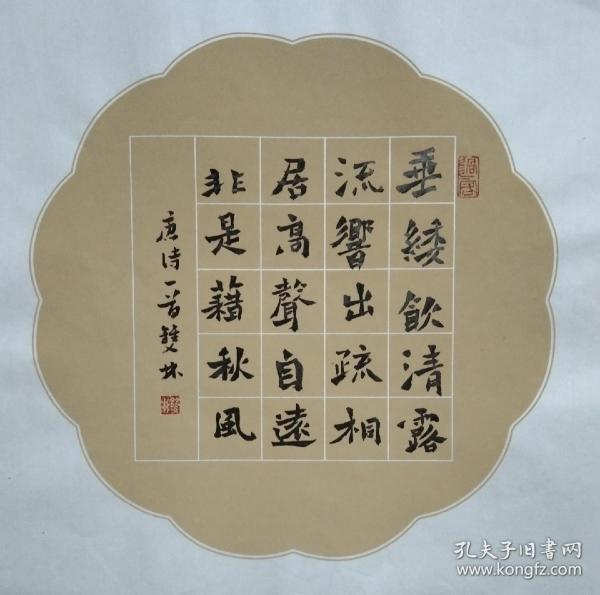 垂緌飲清露
流響出疏桐
居高聲自遠
非是藉秋風
唐诗一首雙林
孔夫子旧書网
www.kongfz.com